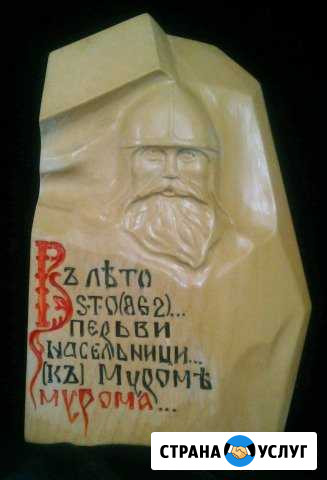 Въ лѣто
ѕ·т·о (862)...
первии
насельници...
(къ) Муромѣ
мурома...
СТРАНА УСЛУГ